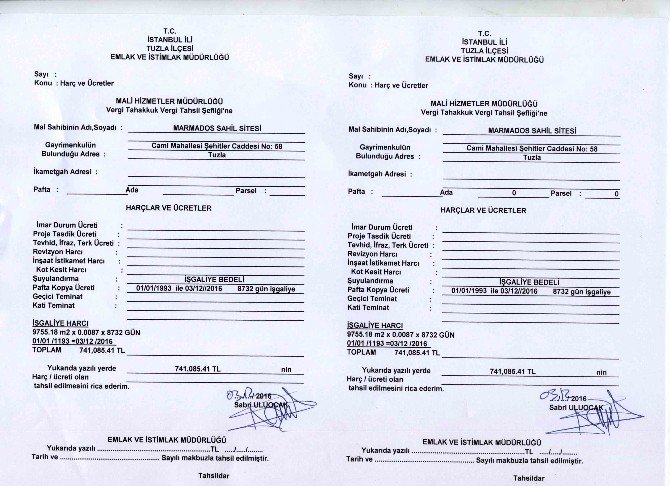 T.C.
İSTANBUL İLİ
TUZLA İLÇESİ
EMLAK VE İSTİMLAK MÜDÜRLÜĞÜ
Sayı :
Konu : Harç ve Ücretler
MALİ HİZMETLER MÜDÜRLÜĞÜ
Vergi Tahakkuk Vergi Tahsil Şefliği'ne
Mal Sahibinin Adı,Soyadı : MARMADOS SAHİL SİTESİ
Gayrimenkulün Cami Mahallesi Şehitler Caddesi No: 58
Bulunduğu Adres : Tuzla
İkametgah Adresi :
Pafta : Ada Parsel :
HARÇLAR VE ÜCRETLER
İmar Durum Ücreti :
Proje Tasdik Ücreti :
Tevhid, İfraz, Terk Ücreti :
Revizyon Harcı :
İnşaat İstikamet Harcı :
Kot Kesit Harcı :
Şuyulandırma : İŞGALİYE BEDELİ
Pafta Kopya Ücreti : 01/01/1993 ile 03/12//2016 8732 gün işgaliye
Geçici Teminat :
Kati Teminat :
İŞGALİYE HARCI
9755.18 m2 x 0.0087 x 8732 GÜN
01/01 /1193 =03/12 /2016
TOPLAM 741,085.41 TL
Yukarıda yazılı yerde 741,085.41 TL nin
Harç / ücreti olan
tahsil edilmesini rica ederim.
2016
Sabri ULUOCAK
EMLAK VE İSTİMLAK MÜDÜRLÜĞÜ
Yukarıda yazılı ..........................................TL ..../..../......
Tarih ve .................................. Sayılı makbuzla tahsil edilmiştir.
Tahsildar
T.C.
İSTANBUL İLİ
TUZLA İLÇESİ
EMLAK VE İSTİMLAK MÜDÜRLÜĞÜ
Sayı :
Konu : Harç ve Ücretler
MALİ HİZMETLER MÜDÜRLÜĞÜ
Vergi Tahakkuk Vergi Tahsil Şefliği'ne
Mal Sahibinin Adı,Soyadı : MARMADOS SAHİL SİTESİ
Gayrimenkulün Cami Mahallesi Şehitler Caddesi No: 58
Bulunduğu Adres : Tuzla
İkametgah Adresi :
Pafta : Ada 0 Parsel : 0
HARÇLAR VE ÜCRETLER
İmar Durum Ücreti :
Proje Tasdik Ücreti :
Tevhid, İfraz, Terk Ücreti :
Revizyon Harcı :
İnşaat İstikamet Harcı :
Kot Kesit Harcı :
Şuyulandırma : İŞGALİYE BEDELİ
Pafta Kopya Ücreti : 01/01/1993 ile 03/12//2016 8732 gün işgaliye
Geçici Teminat :
Kati Teminat :
İŞGALİYE HARCI
9755.18 m2 x 0.0087 x 8732 GÜN
01/01 /1193 =03/12 /2016
TOPLAM 741,085.41 TL
Yukarıda yazılı yerde 741,085.41 TL nin
Harç / ücreti olan
tahsil edilmesini rica ederim.
2016
Sabri ULUOCAK
EMLAK VE İSTİMLAK MÜDÜRLÜĞÜ
Yukarıda yazılı ..........................................TL ..../..../......
Tarih ve .................................. Sayılı makbuzla tahsil edilmiştir.
Tahsildar